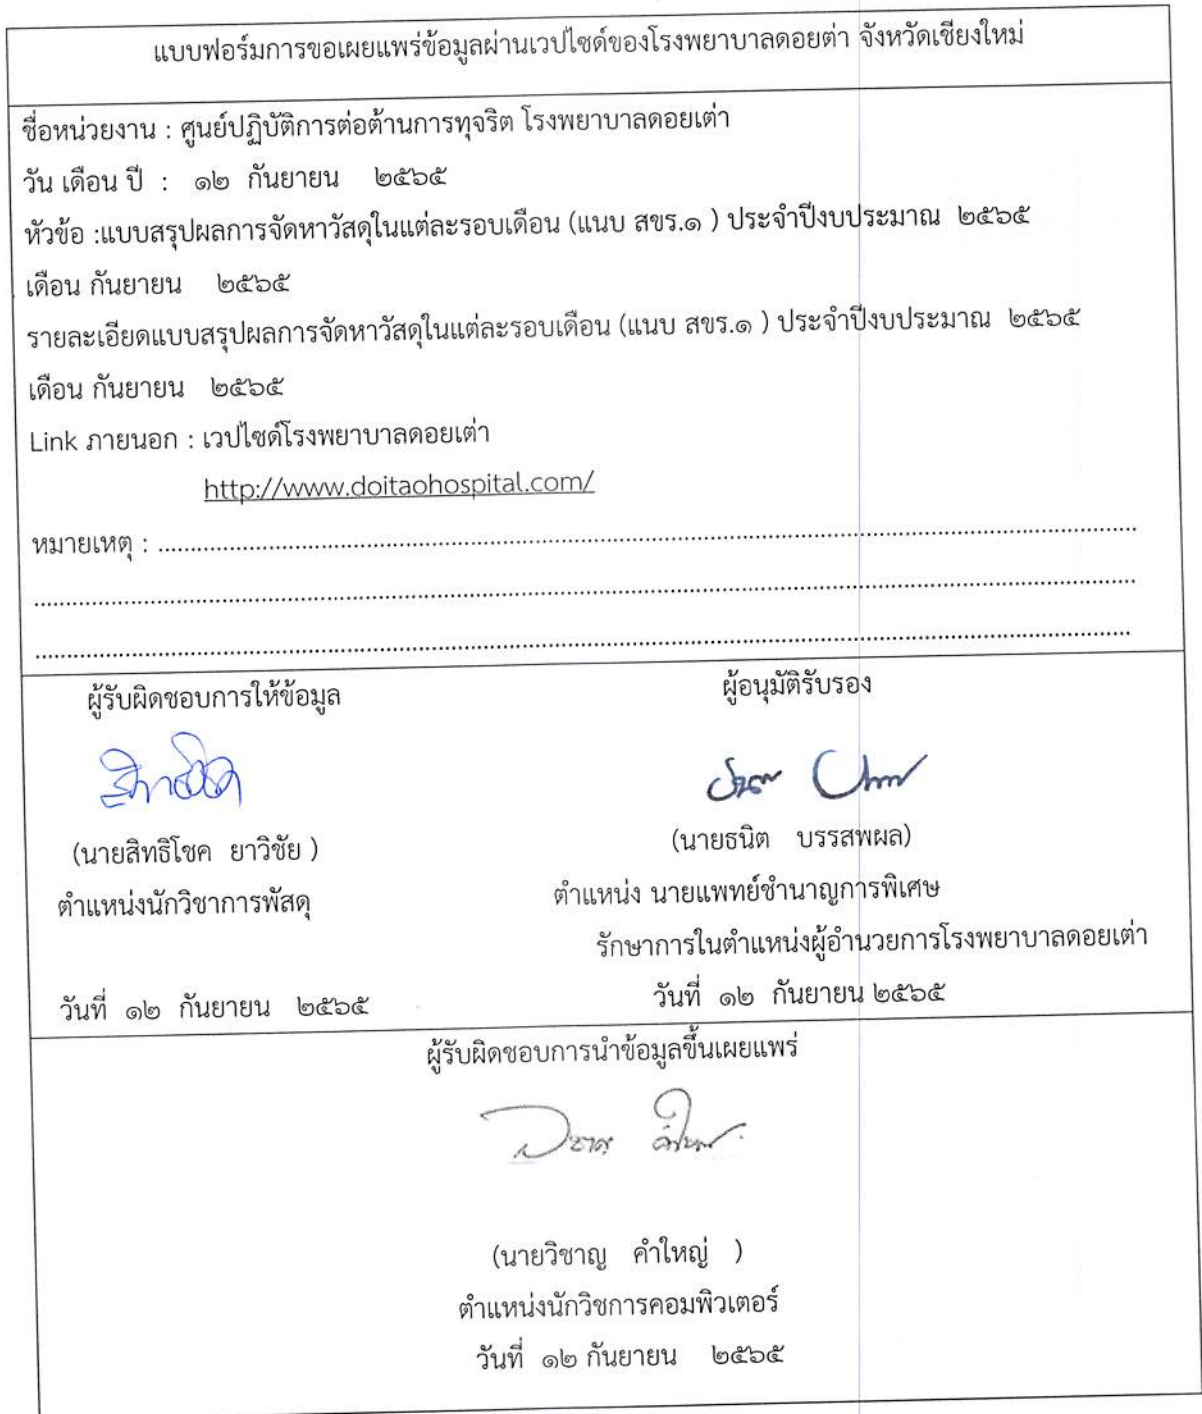 แบบฟอร์มการขอเผยแพร่ข้อมูลผ่านเวปไซด์ของโรงพยาบาลดอยต่า จังหวัดเชียงใหม่
ชื่อหน่วยงาน : ศูนย์ปฏิบัติการต่อต้านการทุจริต โรงพยาบาลดอยเต่า
วัน เดือน ปี : ๑๒ กันยายน ๒๕๖๕
หัวข้อ :แบบสรุปผลการจัดหาวัสดุในแต่ละรอบเดือน (แนบ สขร.๑ ) ประจำปีงบประมาณ ๒๕๖๕
เดือน กันยายน ๒๕๖๕
รายละเอียดแบบสรุปผลการจัดหาวัสดุในแต่ละรอบเดือน (แนบ สขร.๑ ) ประจำปีงบประมาณ ๒๕๖๕
เดือน กันยายน ๒๕๖๕
Link ภายนอก : เวปไซด์โรงพยาบาลดอยเต่า
http://www.doitaohospital.com/
หมายเหตุ : ........................................................................
........................................................................
........................................................................
ผู้รับผิดชอบการให้ข้อมูล
(นายสิทธิโชค ยาวิชัย )
ตำแหน่งนักวิชาการพัสดุ
วันที่ ๑๒ กันยายน ๒๕๖๕
ผู้อนุมัติรับรอง
(นายธนิต บรรสพผล)
ตำแหน่ง นายแพทย์ชำนาญการพิเศษ
รักษาการในตำแหน่งผู้อำนวยการโรงพยาบาลดอยเต่า
วันที่ ๑๒ กันยายน ๒๕๖๕
ผู้รับผิดชอบการนำข้อมูลขึ้นเผยแพร่
(นายวิชาญ คำใหญ่ )
ตำแหน่งนักวิชการคอมพิวเตอร์
วันที่ ๑๒ กันยายน ๒๕๖๕